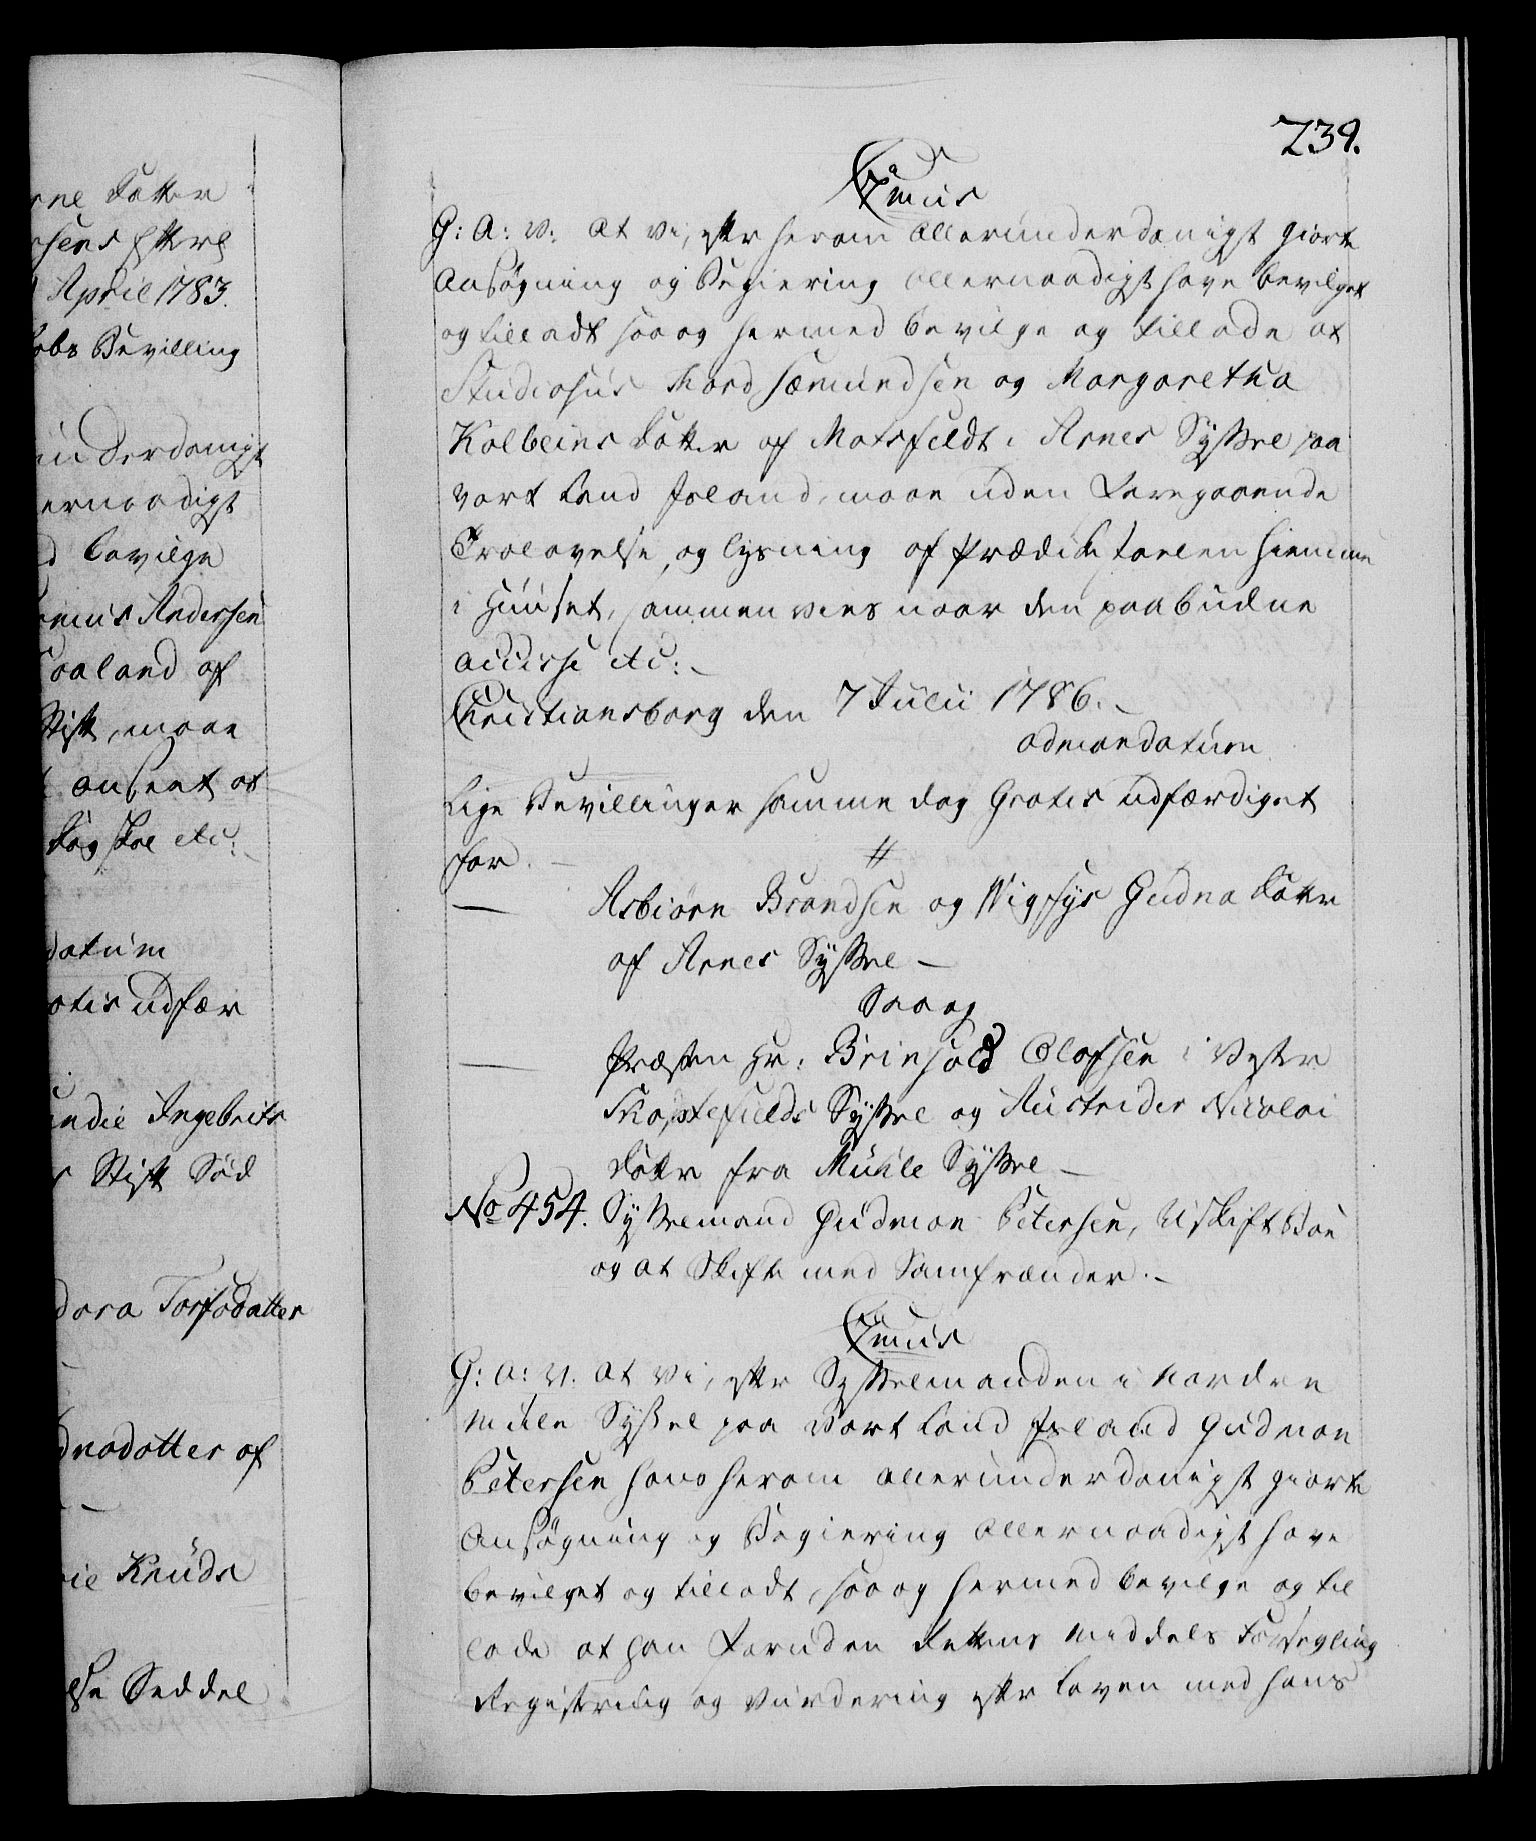 739.
C7mus
G: A: V: At Vi, efter herom allerunderdanigst giorte
Ansøgning og Begiering allernaadigst have bevilget
og tilladt saa og hermed bevilge og tillade at
Studiosus Mard Sæmundsen og Margaretha
Kolbeins Datter af Matsfeldt i Arnes Syssel paa
vort Land Island, maae uden Foregaaende
Trolovelse, og lysning af Prædikestoelen hiemme
i Huuset, sammen vies naar den paabudne
accisse etc:
Christiansborg den 7 Julii 1786.
admandatum
Lige Bevillinger samme dag Gratis udfærdiget
for.
Asbiørn Brandsen og Wigfys Gudna Datter
af Arnes Syssel
Saa og
Præsten Hr: Brinjold Olafsen i Vester
Skaptefields Syssel og Austrider Nicolai
Datter fra Muhle Syssel
No 454. Sysselmand Gudman Petersen, Uskift Boe
og at Skifte med Samfrænder.
C7mus
G: A: V: At Vi, efter Sysselmanden i Nordre
Mule Syssel paa Vort Land Island Gudman
Petersen hans herom allerunderdanigst giorte
Ansøgning og Begiering Allernaadigst have
bevilget og tilladt, saa og hermed bevilge og til
lade at han Foruden Rettens Middels Forsegling
Registring og Vurdering efter Loven med hans
rne Datter
rsens Efterl
April 1783.
kabs Bevilling
underdanigst
ernaadigst
d bevilge
Andersen
aaland af
Stift, maae
anseet at
etc:
datum
atis udfær
Ingebrits
Stift Sød
dora Torfadatter
dnadatter af
rie Knuds
else Seddel